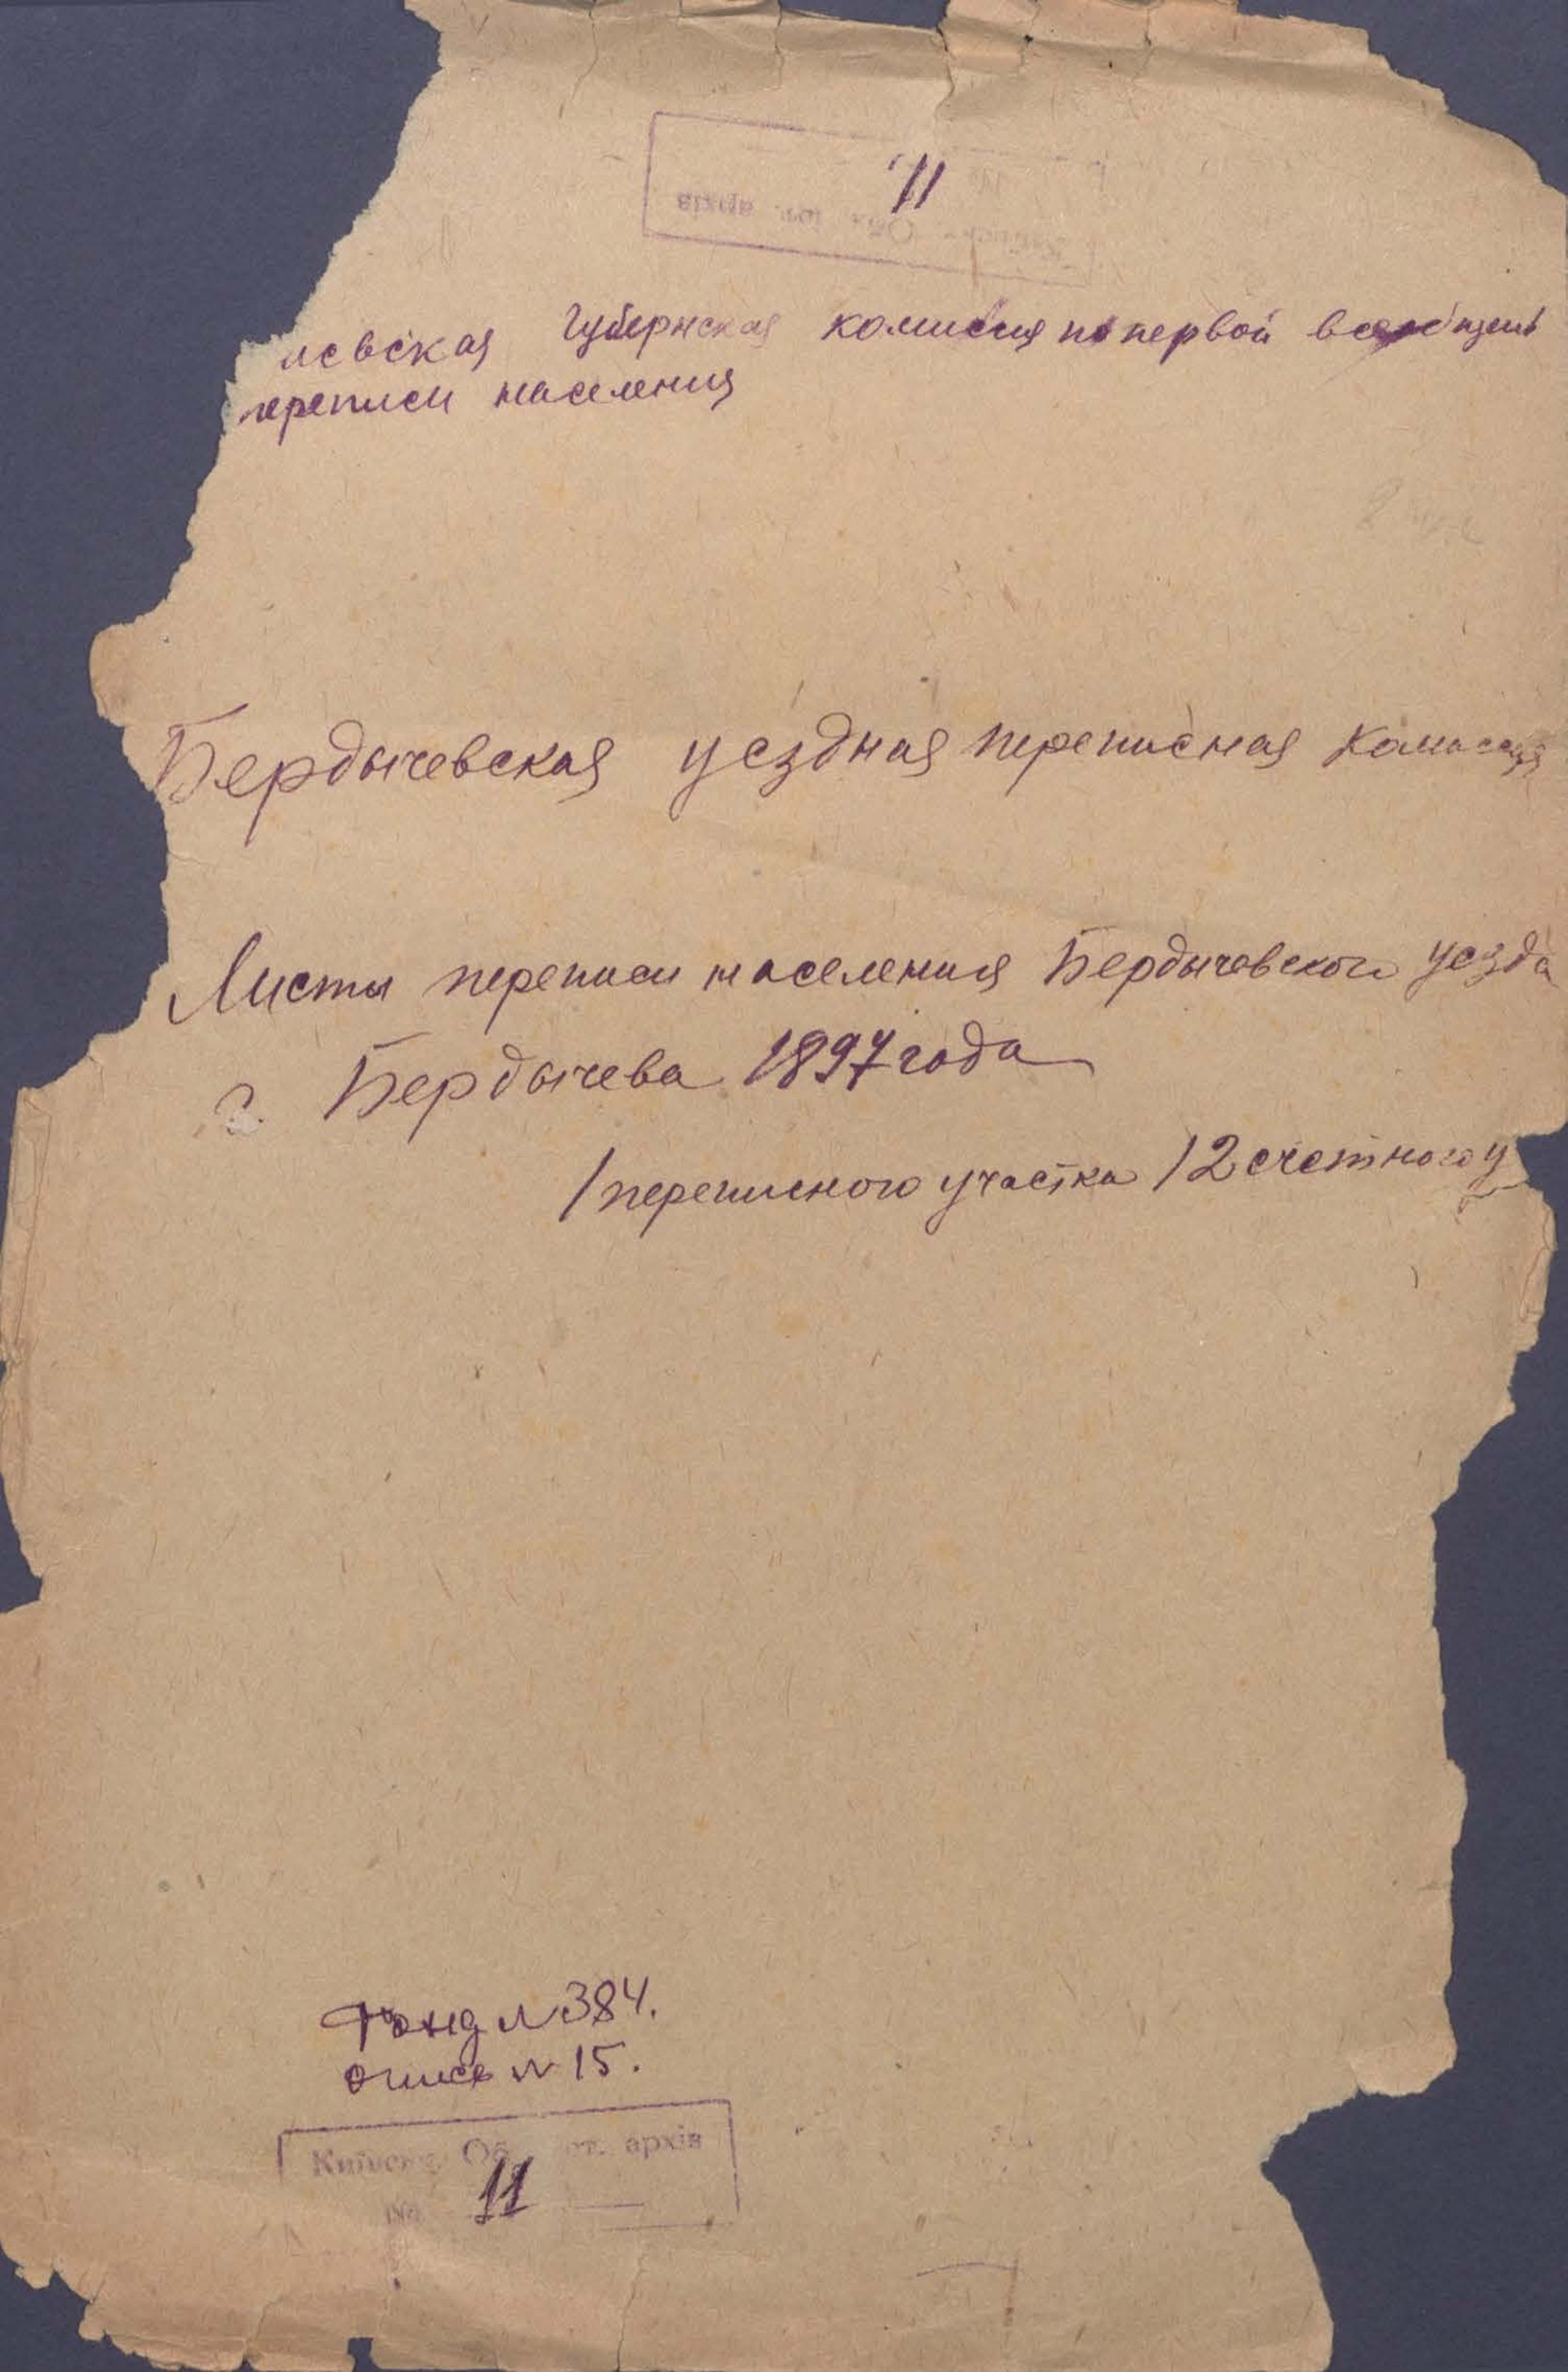 11
иевская губернская комиссия по первой всеобщей
переписи населения
Бердичевская уездная переписная комиссия
Листы переписи населения Бердичевского уезда
г. Бердичева 1897 года
1 переписного участка 12 счетного у
Фонд N 384.
опись N 15.
архів
11